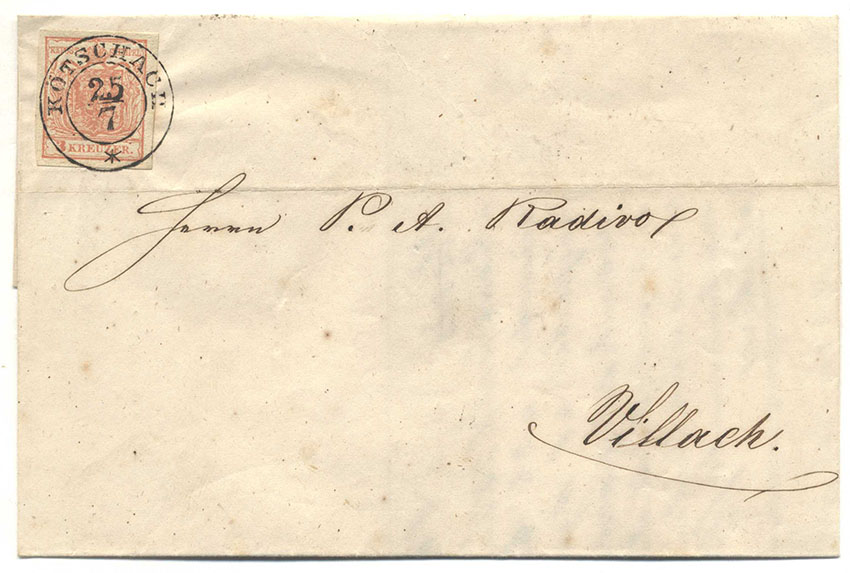 KÖTSCHACH
25
7
3 KREUZER.
Herrn P. A. Radivo
Villach.